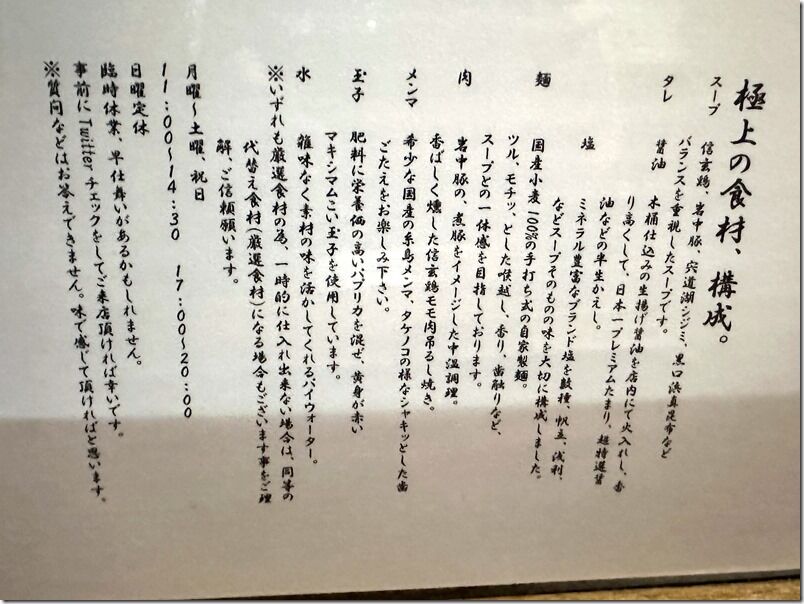 極上の食材、構成。
スープ　信玄鶏、岩中豚、宍道湖シジミ、黒口浜真昆布など
バランスを重視したスープです。
タレ
醤油　木桶仕込みの生揚げ醤油を店内にて火入れし、香
り高くして、日本一プレミアムたまり、超特選醤
油などの半生かえし。
塩　ミネラル豊富なブランド塩を数種、帆立、浅利、
などスープそのものの味を大切に構成しました。
麺　国産小麦100%の手打ち式の自家製麺。
ツル、モチッ、とした喉越し、香り、歯触りなど、
スープとの一体感を目指しております。
肉　岩中豚の、煮豚をイメージした中温調理。
香ばしく燻した信玄鶏モモ肉吊るし焼き。
メンマ　希少な国産の糸島メンマ、タケノコの様なシャキッとした歯
ごたえをお楽しみ下さい。
玉子　肥料に栄養価の高いパプリカを混ぜ、黄身が赤い
マキシマムこい玉子を使用しています。
水　雑味なく素材の味を活かしてくれるパイウォーター。
※いずれも厳選食材の為、一時的に仕入れ出来ない場合は、同等の
代替え食材(厳選食材)になる場合もございます事をご理
解、ご信頼願います。
月曜〜土曜、祝日
11:00〜14:30　17:00〜20:00
日曜定休
臨時休業、早仕舞いがあるかもしれません。
事前にTwitterチェックをしてご来店頂ければ幸いです。
※質問などはお答えできません。味で感じて頂ければと思います。